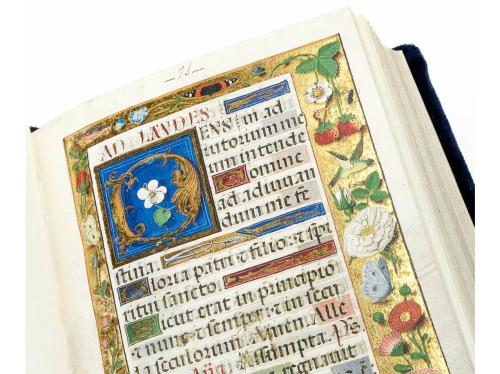 71
AD LAUDES
DENS in ad
iutorium me
um intende
Domine
ad adiuvan
dum me fe
stina
Gloria patri & filio: & spi
ritui sancto
Sicut erat in principio
& nunc & semper: & in secu
la seculorum Amen. Alle
Assumpta. Ps
regnavit